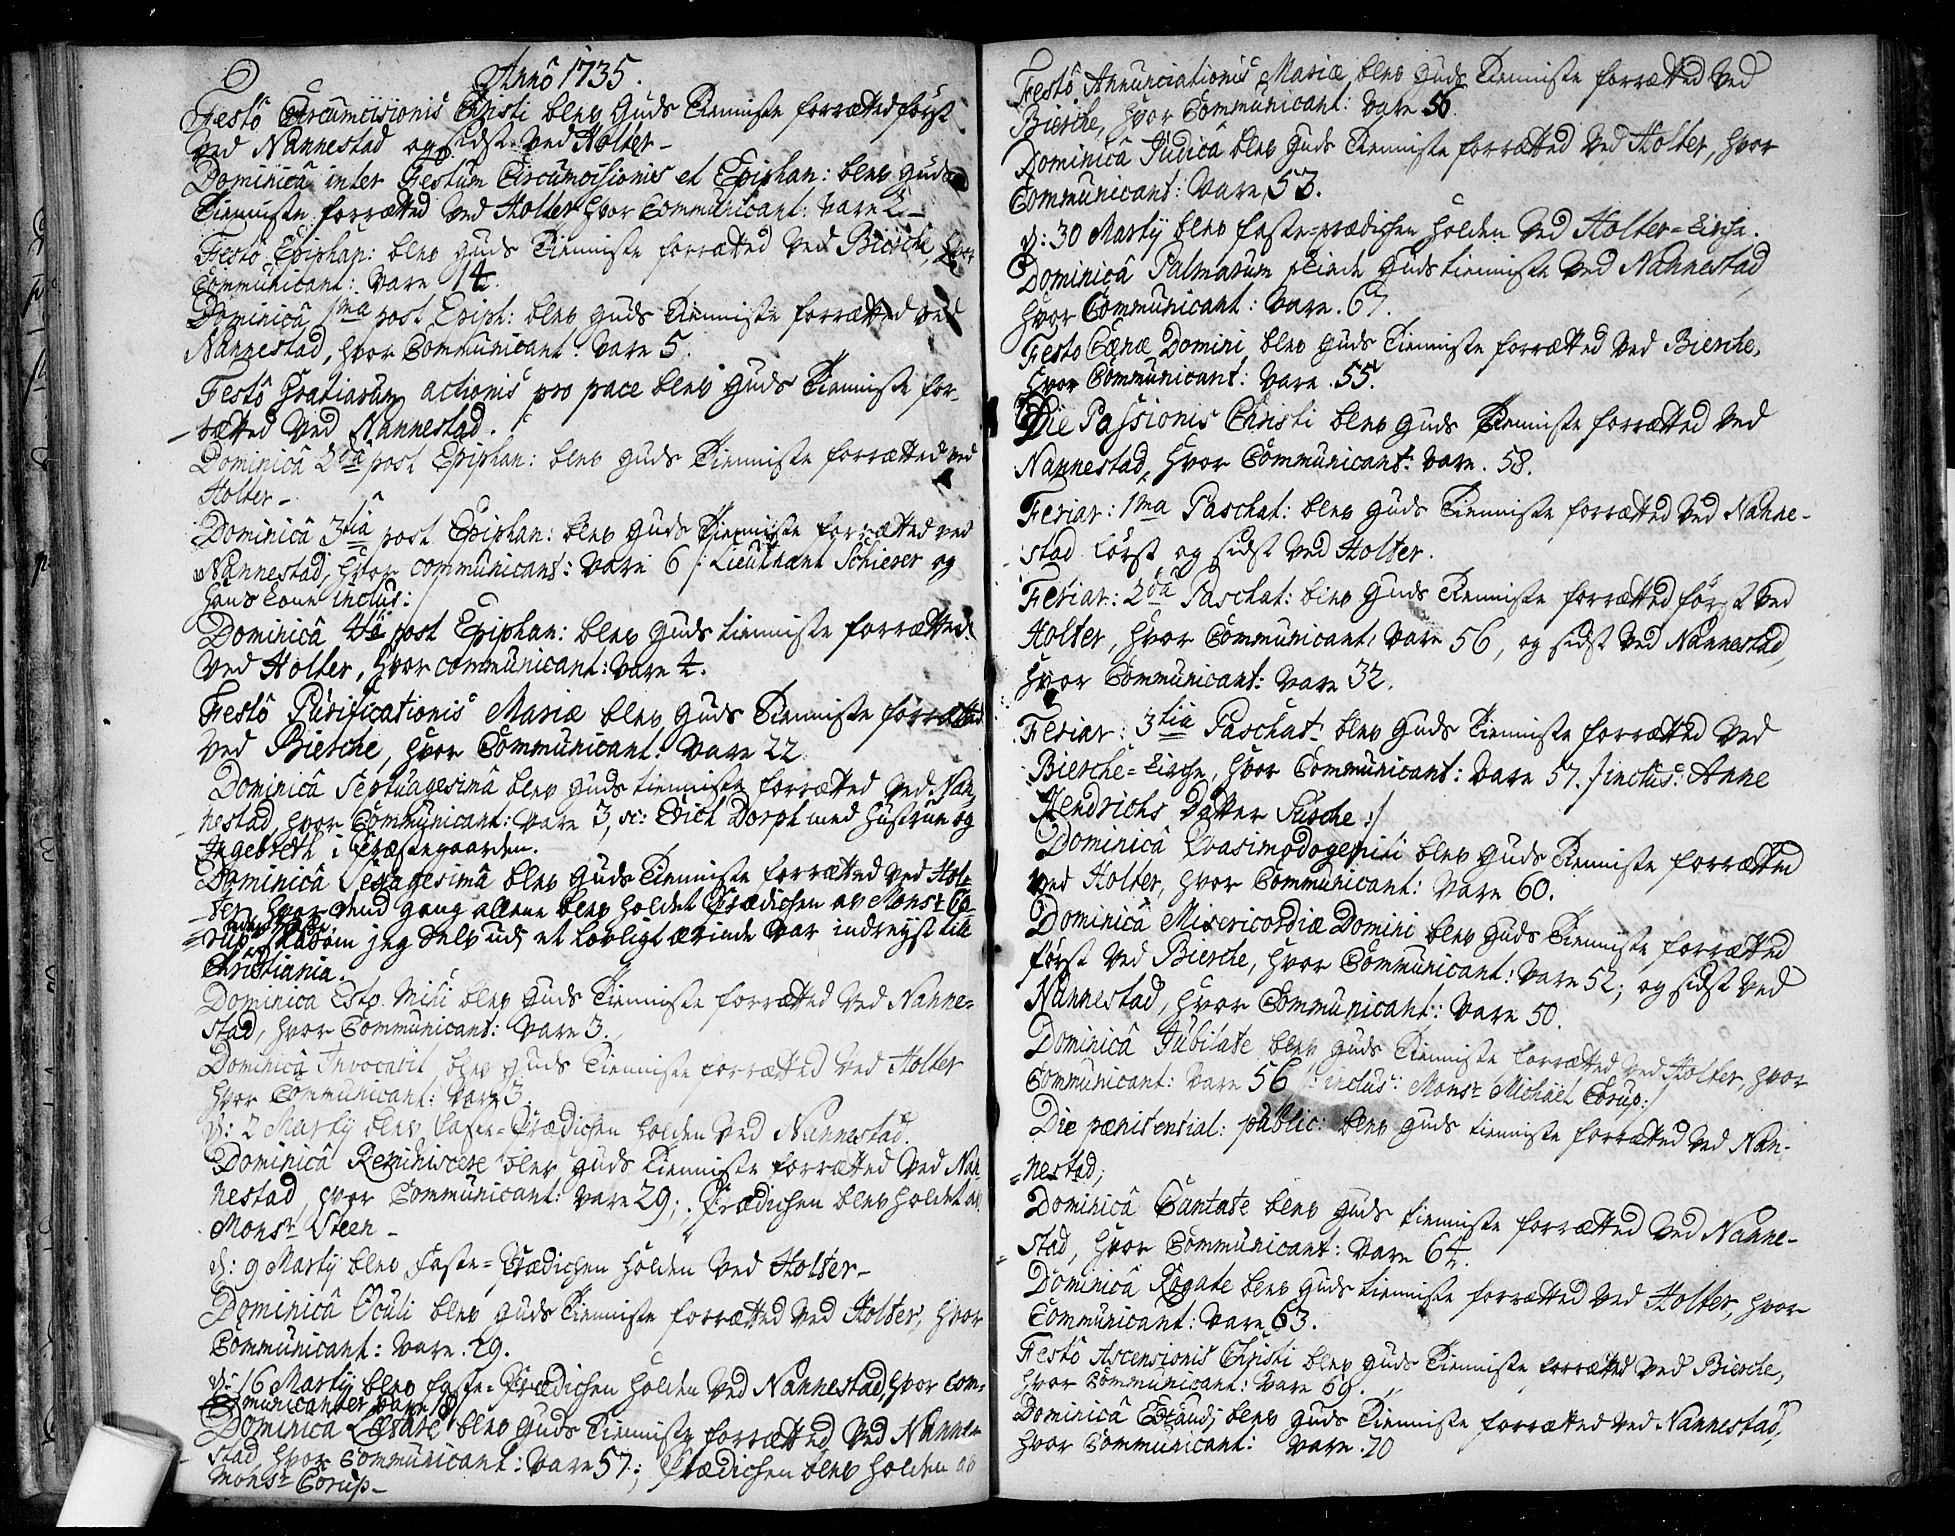 Anno 1735.
Festo Circumcisionis Christi blev Guds Tienniste forrætted først
ved Nannestad og sidst ved Holter -
Dominica inter Festum Circumcisionis et Epiphan: blev Guds
Tienniste forrætted ved Holter hvor Communicant: vare 2 -
Festo Epiphan: blev Guds Tienniste forrætted ved Biercke, hvor
Communicant: vare 14.
Dominica 1ma post Epiph: blev Guds Tienniste forrætted ved
Nannestad, hvor Communicant: vare 5.
Festo Gratiarum actionis pro pace blev Guds Tienniste for-
rætted ved Nannestad.
Dominica 2da post Epiphan: blev Guds Tienniste forrætted ved
Holter -
Dominica 3tia post Epiphan: blev Guds Tienniste forrætted ved
Nannestad, hvor communicant: vare 6 /: Lieutnant Schierer og
hans Kone inclus: /
Dominica 4ta post Epiphan: blev Guds tienniste forrætted
ved Holter, hvor communicant: vare 4.
Festo Purificationis Mariæ blev Guds Tienniste forrætted
ved Biersche, hvor Communicant: vare 22
Dominica Septuagesima blev Guds tienniste forrætted ved Nan-
nestad, hvor Communicant: vare 3, sc: Erich Dorph med Hustrue og
Ingebreth i Præstegaarden.
Dominica Sexagesima blev Guds Tienniste forrætted ved Hol-
ter, hvor dend gang allene blev holdet Prædichen av Monsr Co-
rup, saasom jeg selv udj et lovligt ærinde var indreyst till
Christiania.
Dominica Esto Mihi blev Guds Tienniste forrætted ved Nanne-
stad, hvor Communicant: vare 3.
Dominica Invocavit blev Guds Tienniste forrætted ved Holter
hvor Communicant: vare 3.
d: 2 Martij blev Faste-Prædichen holden ved Nannestad.
Dominica Reminiscere blev Guds Tienniste forrætted ved Nan-
nestad, hvor Communicant: vare 29; Prædichen blev holdet av
Monsr Steen -
d: 9 Martij blev Faste-Prædichen holden ved Holter -
Dominica Oculi blev Guds Tienniste forrætted ved Holter, hvor
Communicant: vare 29.
d: 16 Martij blev faste-Prædichen holden ved Nannestad, hvor Com-
municanter vare
Dominica Lætare blev Guds Tienniste forrætted ved Nanne-
stad, hvor Communicant: vare 57; Prædichen blev holden av
Monsr Corup -
Festo Annunciationis Mariæ blev Guds Tienniste forrætted ved
Biersche, hvor Communicant: vare 50
Dominica Judica blev Guds Tienniste forrætted ved Holter, hvor
Communicant: vare, 53.
d: 30 Martij blev faste-prædichen holden ved Holter-Kirche.
Dominica Palmarum skiede Guds tienniste ved Nannestad
hvor Communicant: vare. 67.
Festo Cænæ Domini blev Guds Tienniste forrætted ved Biersche,
hvor Communicant: vare. 55.
Die Passionis Christi blev Guds Tienniste forrætted ved
Nannestad, hvor Communicant: vare. 58.
Feriar: 1ma Paschat: blev Guds Tienniste forrætted ved Nanne-
stad først, og sidst ved Holter.
Feriar: 2da Paschat: blev Guds Tienniste forrætted først ved
Holter, hvor Communicant: vare 56, og sidst ved Nannestad,
hvor Communicant: vare 32.
Feriar: 3tia Paschat: blev Guds Tienniste forrætted ved
Biersche-Kirche, hvor Communicant: vare 57. /inclus: Anne
Hendrichs Datter Susche:/
Dominica Qvasimodogeniti blev Guds Tienniste forrætted
ved Holter, hvor Communicant: vare 60.
Dominica Misericordiæ Domini blev Guds Tienniste forrætted
først ved Biersche, hvor Communicant: vare 52; og sidst ved
Nannestad, hvor Communicant: vare 50.
Dominica Jubilate blev Guds Tienniste forrætted ved Holter, hvor
Communicant: vare 56 /: inclus: Monsr Michael Corup:/
Die pænitential: public: blev Guds tienniste forrætted ved Nan-
nestad;
Dominica Cantate blev Guds tienniste forrætted ved Nanne-
stad, hvor Communicant: vare 64.
Dominica Rogate blev Guds tienniste forrætted ved Holter, hvor
Communicant: vare 63.
Festo Ascensionis Christi blev Guds Tienniste forrætted ved Biersche,
hvor Communicant: vare 69.
Dominica Exaudj blev Guds Tienniste forrætted ved Nannestad,
hvor Communicant: vare 70